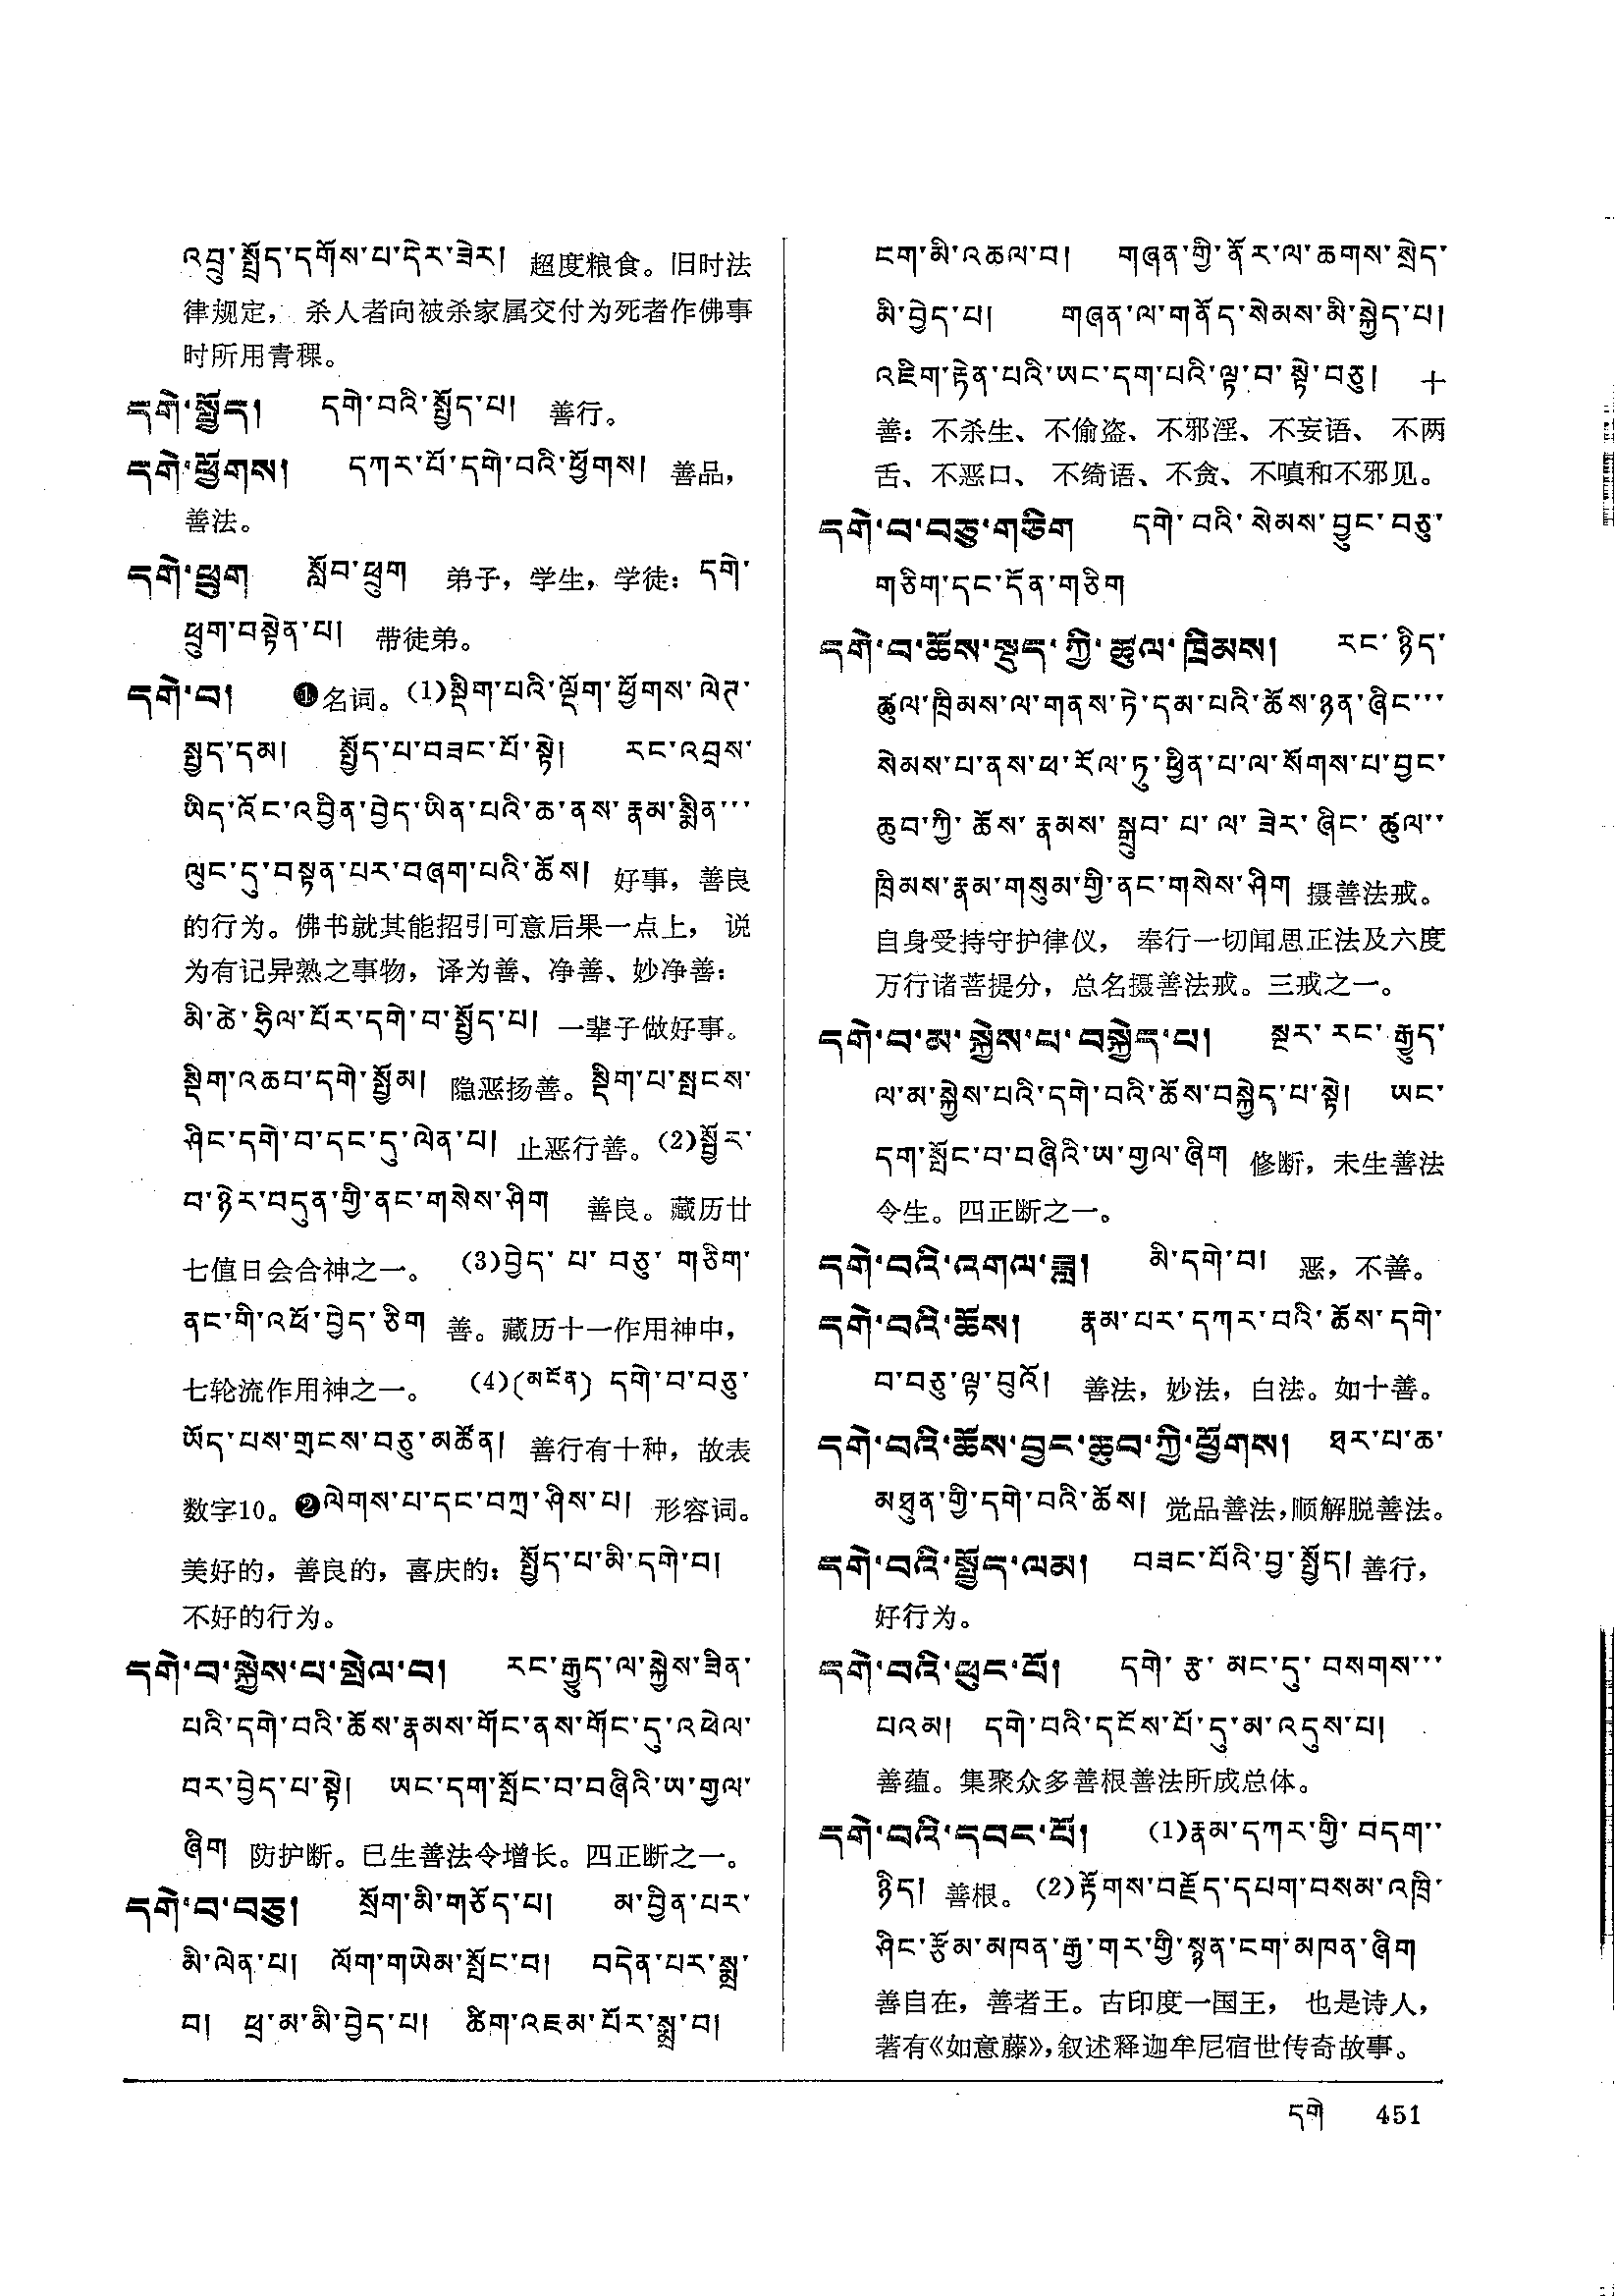 འབྲུ་སྤྲོད་དགོས་པ་དེར་ཟེར། 超度粮食。旧时法
律规定，杀人者向被杀家属交付为死者作佛事
时所用青稞。
དགེ་སྤྱོད། དགེ་བའི་སྤྱོད་པ། 善行。
དགེ་ཕྱོགས། དཀར་པོ་དགེ་བའི་ཕྱོགས། 善品，
善法。
དགེ་ཕྲུག སློབ་ཕྲུག 弟子，学生，学徒：དགེ་
ཕྲུག་བསྟེན་པ། 带徒弟。
དགེ་བ། ❶名词。(1)སྡིག་པའི་ལྡོག་ཕྱོགས་ལེཊ་
སྤྱད་དམ། སྤྱོད་པ་བཟང་པོ་སྟེ། རང་འབྲས་
ཡིད་འོང་འབྱིན་བྱེད་ཡིན་པའི་ཆ་ནས་རྣམ་སྨིན་་་
ལུང་དུ་བསྟན་པར་བཞག་པའི་ཆོས། 好事，善良
的行为。佛书就其能招引可意后果一点上，说
为有记异熟之事物，译为善、净善、妙净善：
མི་ཚེ་ཧྲིལ་པོར་དགེ་བ་སྤྱོད་པ། 一辈子做好事。
སྡིག་འཆབ་དགེ་སྤྱོམ། 隐恶扬善。སྡིག་པ་སྤངས་
ཤིང་དགེ་བ་དང་དུ་ལེན་པ། 止恶行善。(2)སྦྱོར་
བ་ཉེར་བདུན་གྱི་ནང་གསེས་ཤིག 善良。藏历廿
七值日会合神之一。 (3)བྱེད་པ་བཅུ་གཅིག་
ནང་གི་འཕོ་བྱེད་ཅིག 善。藏历十一作用神中，
七轮流作用神之一。 (4)(མངོན) དགེ་བ་བཅུ་
ཡོད་པས་གྲངས་བཅུ་མཚོན། 善行有十种，故表
数字10。❷ལེགས་པ་དང་བཀྲ་ཤིས་པ། 形容词。
美好的，善良的，喜庆的：སྤྱོད་པ་མི་དགེ་བ།
不好的行为。
དགེ་བ་སྐྱེས་པ་སྤེལ་བ། རང་རྒྱུད་ལ་སྐྱེས་ཟིན་
པའི་དགེ་བའི་ཆོས་རྣམས་གོང་ནས་གོང་དུ་འཕེལ་
བར་བྱེད་པ་སྟེ། ཡང་དག་སྤོང་བ་བཞིའི་ཨ་གྱལ་
ཞིག 防护断。已生善法令增长。四正断之一。
དགེ་བ་བཅུ། སྲོག་མི་གཅོད་པ། མ་བྱིན་པར་
མི་ལེན་པ། ལོག་གཡེམ་སྤོང་བ། བདེན་པར་སྨྲ་
བ། ཕྲ་མ་མི་བྱེད་པ། ཚིག་འཇམ་པོར་སྨྲ་བ།
ངག་མི་འཆལ་བ། གཞན་གྱི་ནོར་ལ་ཆགས་སྲེད་
མི་བྱེད་པ། གཞན་ལ་གནོད་སེམས་མི་སྐྱེད་པ།
འཇིག་རྟེན་པའི་ཡང་དག་པའི་ལྟ་བ་སྟེ་བཅུ། 十
善：不杀生、不偷盗、不邪淫、不妄语、不两
舌、不恶口、不绮语、不贪、不嗔和不邪见。
དགེ་བ་བཅུ་གཅིག དགེ་བའི་སེམས་བྱུང་བཅུ་
གཅིག་དང་དོན་གཅིག
དགེ་བ་ཆོས་སྡུད་ཀྱི་ཚུལ་ཁྲིམས། རང་ཉིད་
ཚུལ་ཁྲིམས་ལ་གནས་ཏེ་དམ་པའི་ཆོས་ཉན་ཞིང་་་
སེམས་པ་ནས་ཕ་རོལ་ཏུ་ཕྱིན་པ་ལ་སོགས་པ་བྱང་
ཆུབ་ཀྱི་ཆོས་རྣམས་སྒྲུབ་པ་ལ་ཟེར་ཞིང་ཚུལ་་
ཁྲིམས་རྣམ་གསུམ་གྱི་ནང་གསེས་ཤིག 摄善法戒。
自身受持守护律仪，奉行一切闻思正法及六度
万行诸菩提分，总名摄善法戒。三戒之一。
དགེ་བ་མ་སྐྱེས་པ་བསྐྱེད་པ། སྔར་རང་རྒྱུད་
ལ་མ་སྐྱེས་པའི་དགེ་བའི་ཆོས་བསྐྱེད་པ་སྟེ། ཡང་
དག་སྤོང་བ་བཞིའི་ཨ་གྱལ་ཞིག 修断，未生善法
令生。四正断之一。
དགེ་བའི་འགལ་ཟླ། མི་དགེ་བ། 恶，不善。
དགེ་བའི་ཆོས། རྣམ་པར་དཀར་བའི་ཆོས་དགེ་
བ་བཅུ་ལྟ་བུའོ། 善法，妙法，白法。如十善。
དགེ་བའི་ཆོས་བྱང་ཆུབ་ཀྱི་ཕྱོགས། ཐར་པ་ཆ་
མཐུན་གྱི་དགེ་བའི་ཆོས། 觉品善法，顺解脱善法。
དགེ་བའི་སྤྱོད་ལམ། བཟང་པོའི་བྱ་སྤྱོད། 善行，
好行为。
དགེ་བའི་ཕུང་པོ། དགེ་རྩ་མང་དུ་བསགས་་་
པའམ། དགེ་བའི་དངོས་པོ་དུ་མ་འདུས་པ།
善蕴。集聚众多善根善法所成总体。
དགེ་བའི་དབང་པོ། (1)རྣམ་དཀར་གྱི་བདག་་
ཉིད། 善根。(2)རྟོགས་བརྗོད་དཔག་བསམ་འཁྲི་
ཤིང་རྩོམ་མཁན་རྒྱ་གར་གྱི་སྙན་ངག་མཁན་ཞིག
善自在，善者王。古印度一国王，也是诗人，
著有《如意藤》，叙述释迦牟尼宿世传奇故事。
དགེ 451